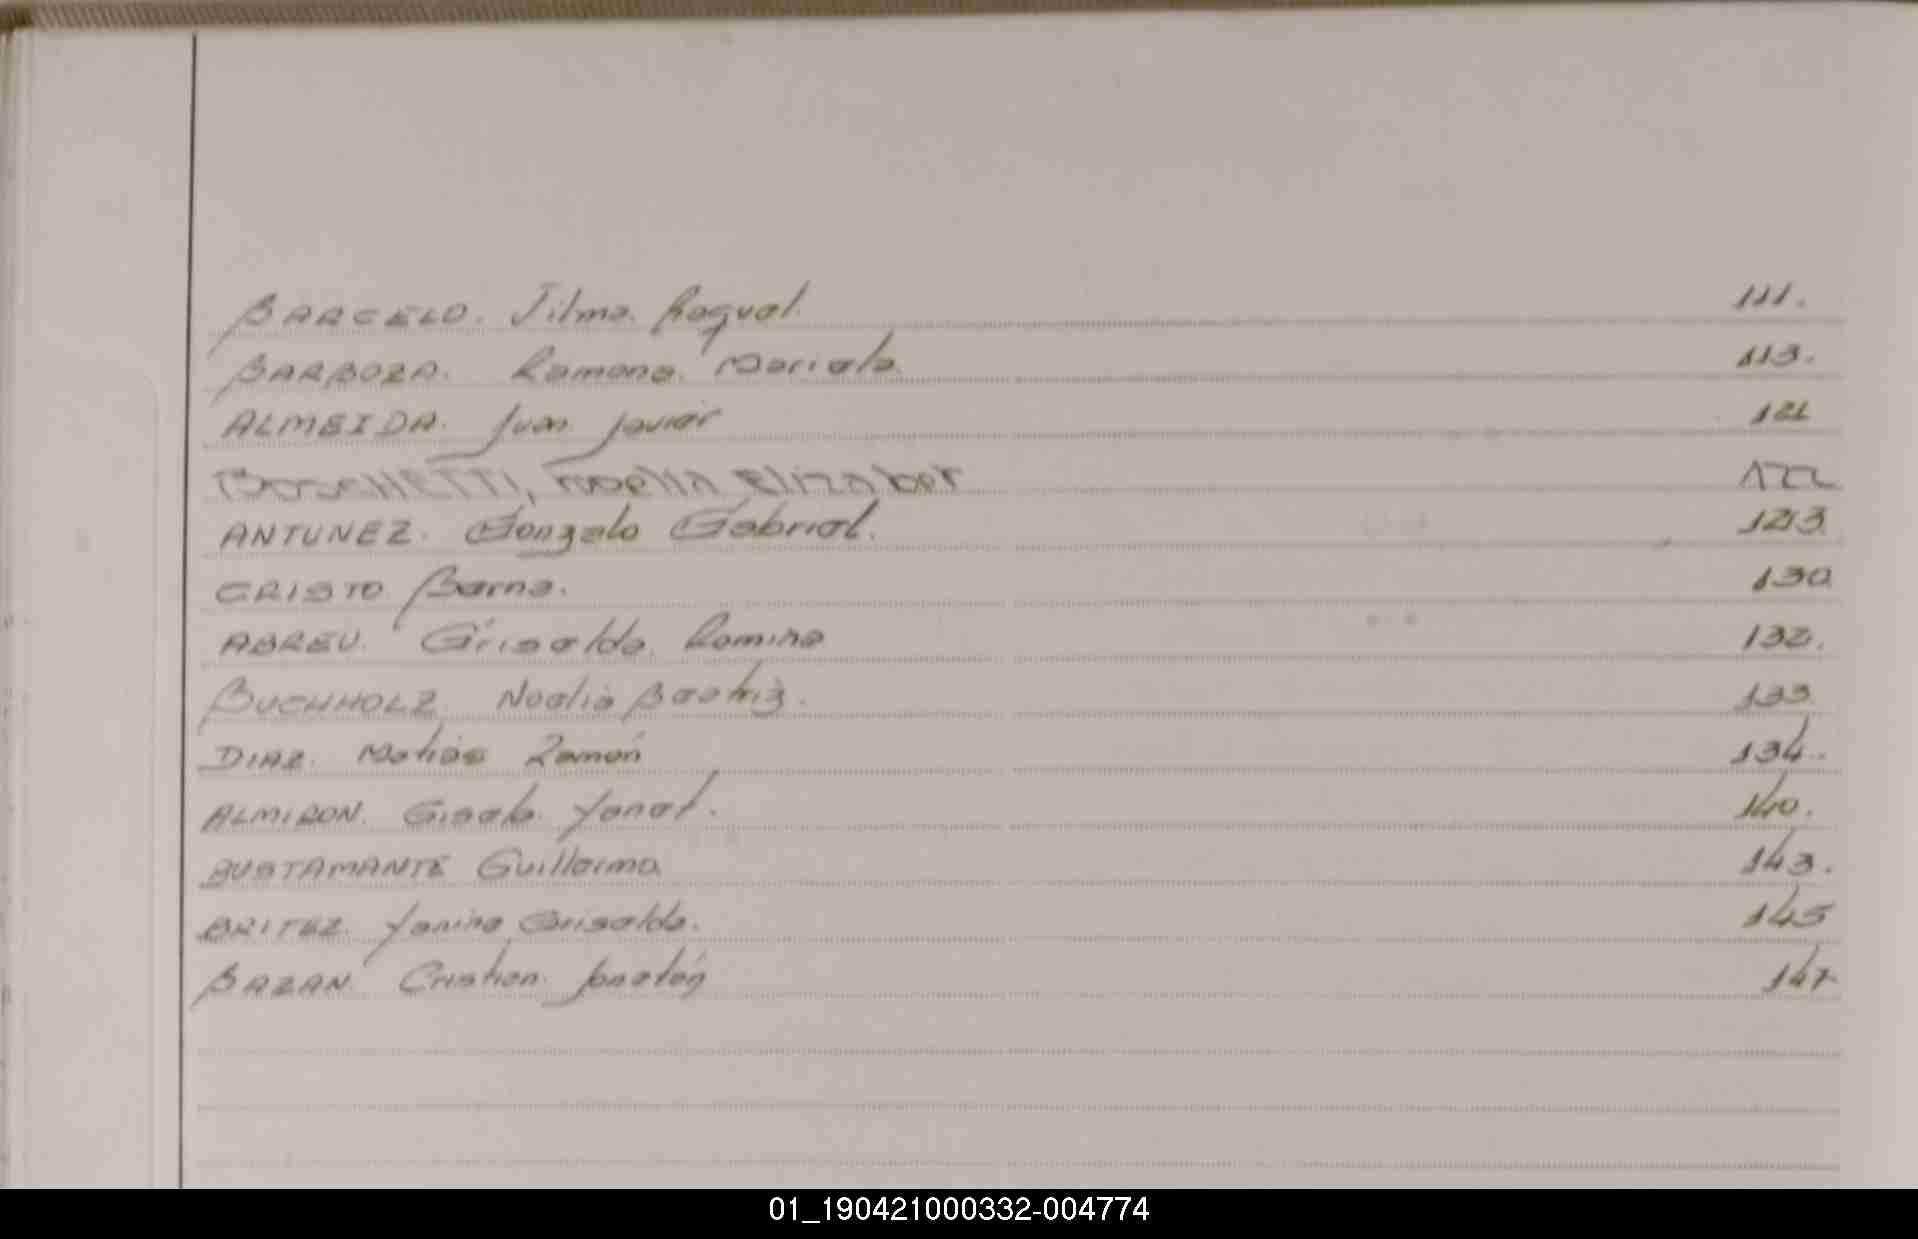 BARCELO. Jilma. Raquel. 111.
BARBOZA. Ramona. Mariela. 113.
ALMEIDA. Juan Javier 121
BOSCHETTI, Noelia Elizabet 122
ANTUNEZ. Gonzalo Gabriel. 123
CRISTO Barna. 130
ABREU. Griselda. Romina 132.
BUCHHOLZ Noelia Beatriz. 133
DIAZ. Matias Ramón 134.
ALMIRON. Gisela Yanet. 140.
BUSTAMANTE Guillermo 143.
BRITEZ. Yanina Griselda. 145
BAZAN. Cristian. Jonatán 147
01_190421000332-004774